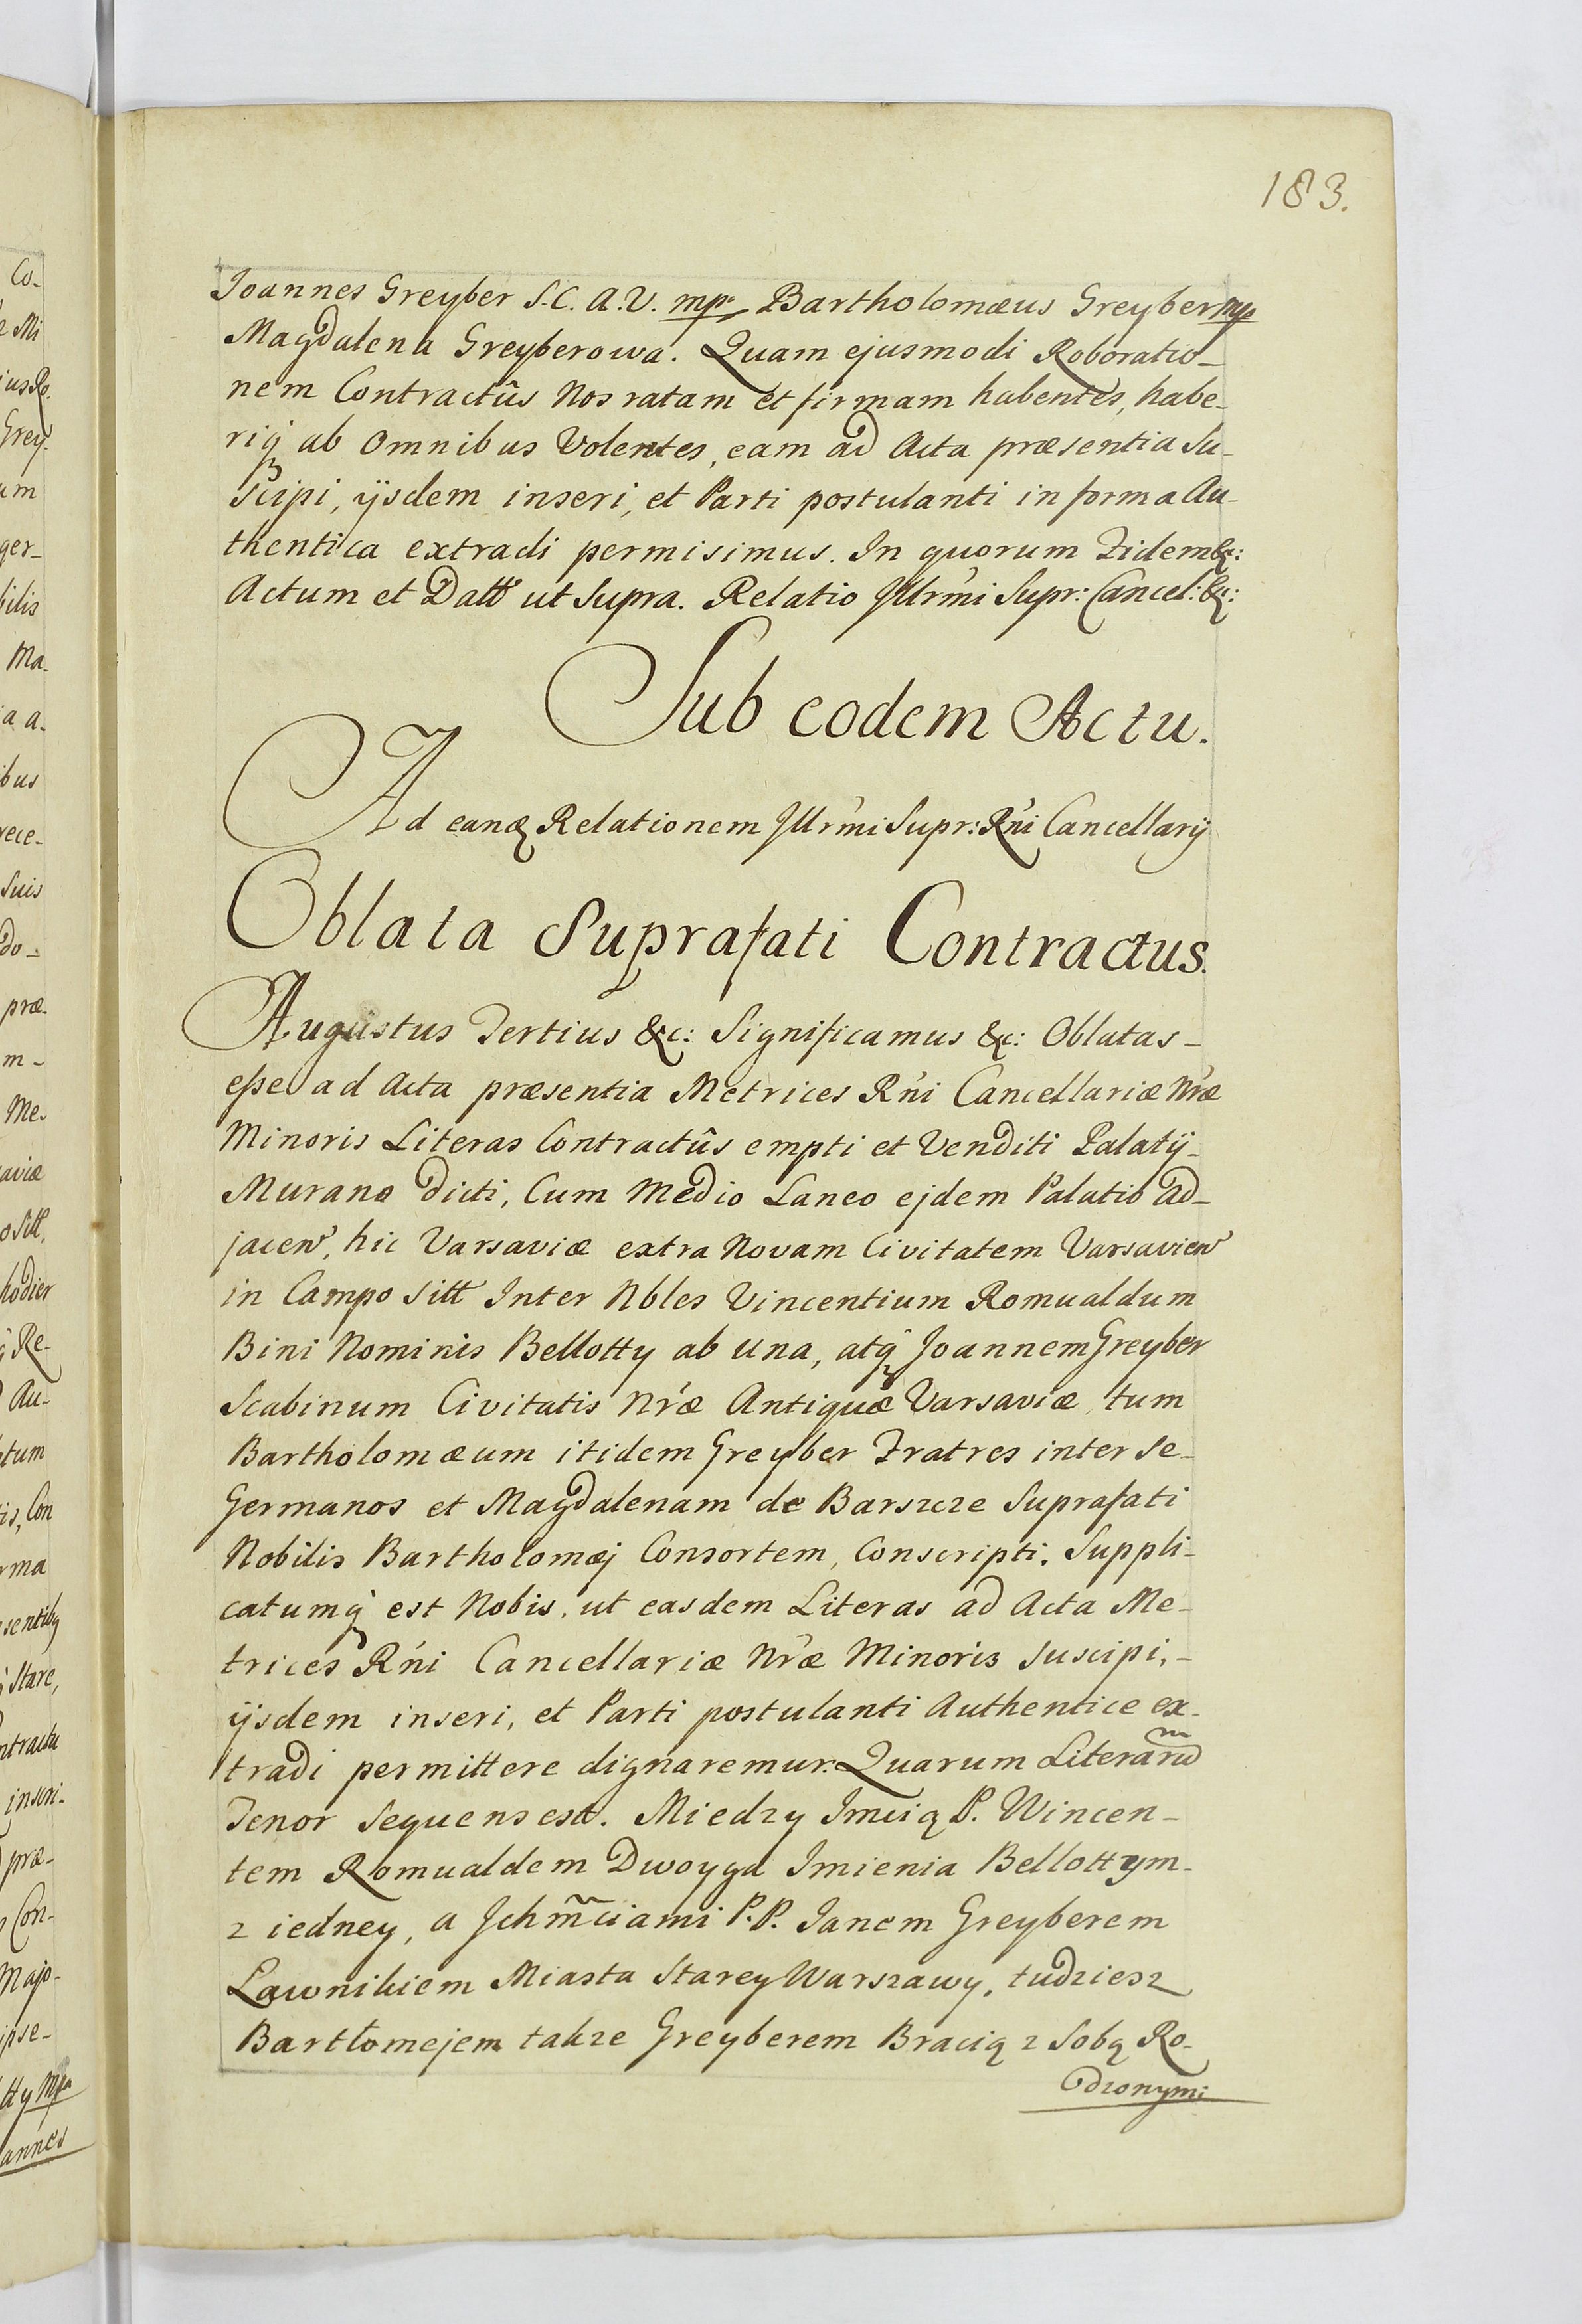 183.
Joannes Greyber S.C.A.V. mp. Bartholomæus Greyber mp
Magdalena Greyberowa. Quam ejusmodi Roboratio-
nem Contractûs Nos ratam et firmam habentes, habe-
riq́ ab Omnibus Volentes, eam ad Acta præsentia Su-
scipi, ijsdem inseri, et Parti postulanti in forma Au-
thentica extradi permisimus. In quorum Fidem &c:
Actum et Datt ut Supra. Relatio Jllrm̃i Supr: Cancel: &c:
Sub eodem Actu.
Ad eanq Relationem Jllrm̃i Supr: Rńi Cancellarij
Oblata Suprafati Contractus.
Augustus Tertius &c: Significamus &c: Oblatas-
esse ad Acta præsentia Metrices Rńi Cancellariæ Nræ
Minoris Literas Contractûs empti et Venditi Palatij-
Murano dicti, Cum Medio Laneo ejdem Palatio ad-
jacen, hic Varsaviæ extra Novam Civitatem Varsavien
in Campo sitt Inter Nbles Vincentium Romualdum
Bini Nominis Bellotty ab una, atq́ Joannem Greyber
Scabinum Civitatis Nræ Antiquæ Varsaviæ, tum
Bartholomæum itidem Greyber Fratres inter se-
Germanos et Magdalenam de Barszcze Suprafati
Nobilis Bartholomæj Consortem, Conscripti, Suppli-
catumq́ est Nobis, ut easdem Literas ad Acta Me-
trices Rńi Cancellariæ Nræ Minoris suscipi,-
ijsdem inseri, et Parti postulanti Authentice ex-
tradi permittere dignaremur. Quarum Literarum
Tenor sequens est. Miedzy Imcią P. Wincen-
tem Romualdem Dwoyga Imienia Bellottym-
z iedney, a Jchm̃ciami P.P. Janem Greyberem
Ławnikiem Miasta Starey Warszawy, tudziesz
Bartłomejem takze Greyberem Bracią z Sobą Ro-
dzonymi